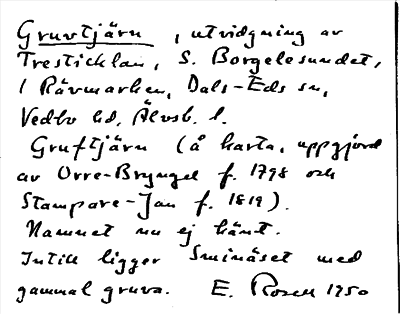 Gruvtjärn, utvidgning av
Tresticklan, S. Borgelesundet,
i Rävmarken, Dals-Eds sn,
Vedbo hd, Älvsb. l.
Gruftjärn (å karta, uppgjord
av Orre-Bryngel f. 1798 och
Stampare-Jan f. 1819).
Namnet nu ej känt.
Intill ligger Sminäset med
gammal gruva. E. Rosell 1950